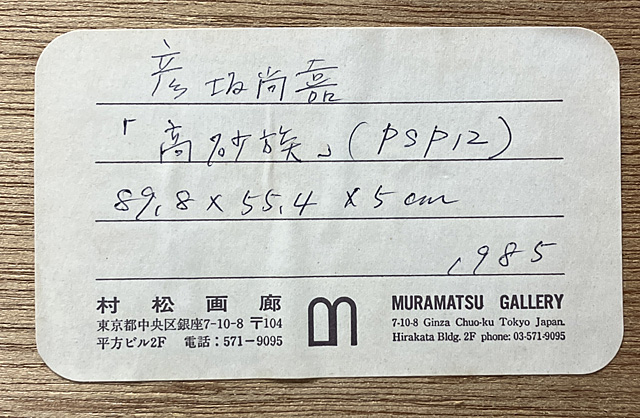 彦坂尚嘉
「高砂族」(PSP12)
89.8 x 55.4 x 5 cm
1985
村松画廊
東京都中央区銀座7-10-8 〒104
平方ビル2F 電話：571-9095
MURAMATSU GALLERY
7-10-8 Ginza Chuo-ku Tokyo Japan.
Hirakata Bldg. 2F phone: 03-571-9095